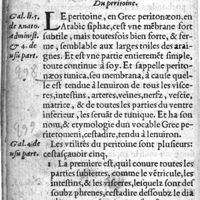 Du peritoine.
Gal. li. 5.
de anato.
administ.
& 4. de
usu part.
LE peritoine, en Grec peritonæon, en
Arabic siphac, est vne mẽbrane fort
subtile, mais toutesfois bien forte, & fer-
me, semblable aux larges toiles des araig-
nes. Et est vne partie entieremẽt simple,
toute continue à soy. Et s'appelle perito-
næos tunica, seu membrana, à cause quel-
le est tendue à lenuiron de tous les vis-
ceres, intestins, artëres, veines, nerfs, ve-
matrice, & de toutes les parties du ventre
inferieur, les seruãt de tunique. Et ha son
nom, & etymologie dun vocable Grec pe-
riteinomenon, cestadire, tendu à lenuiron.
Gal. 4. de
usu part.
Les vtilités du peritoine sont plusieurs:
cestasçauoir cinq.
1 La premiere est, quil couure toutes les
parties subiectes, comme le vẽtricule, les
intestins, & les visceres, lesquels sont des-
soubz phrenes, cestadire dessoubz le dia